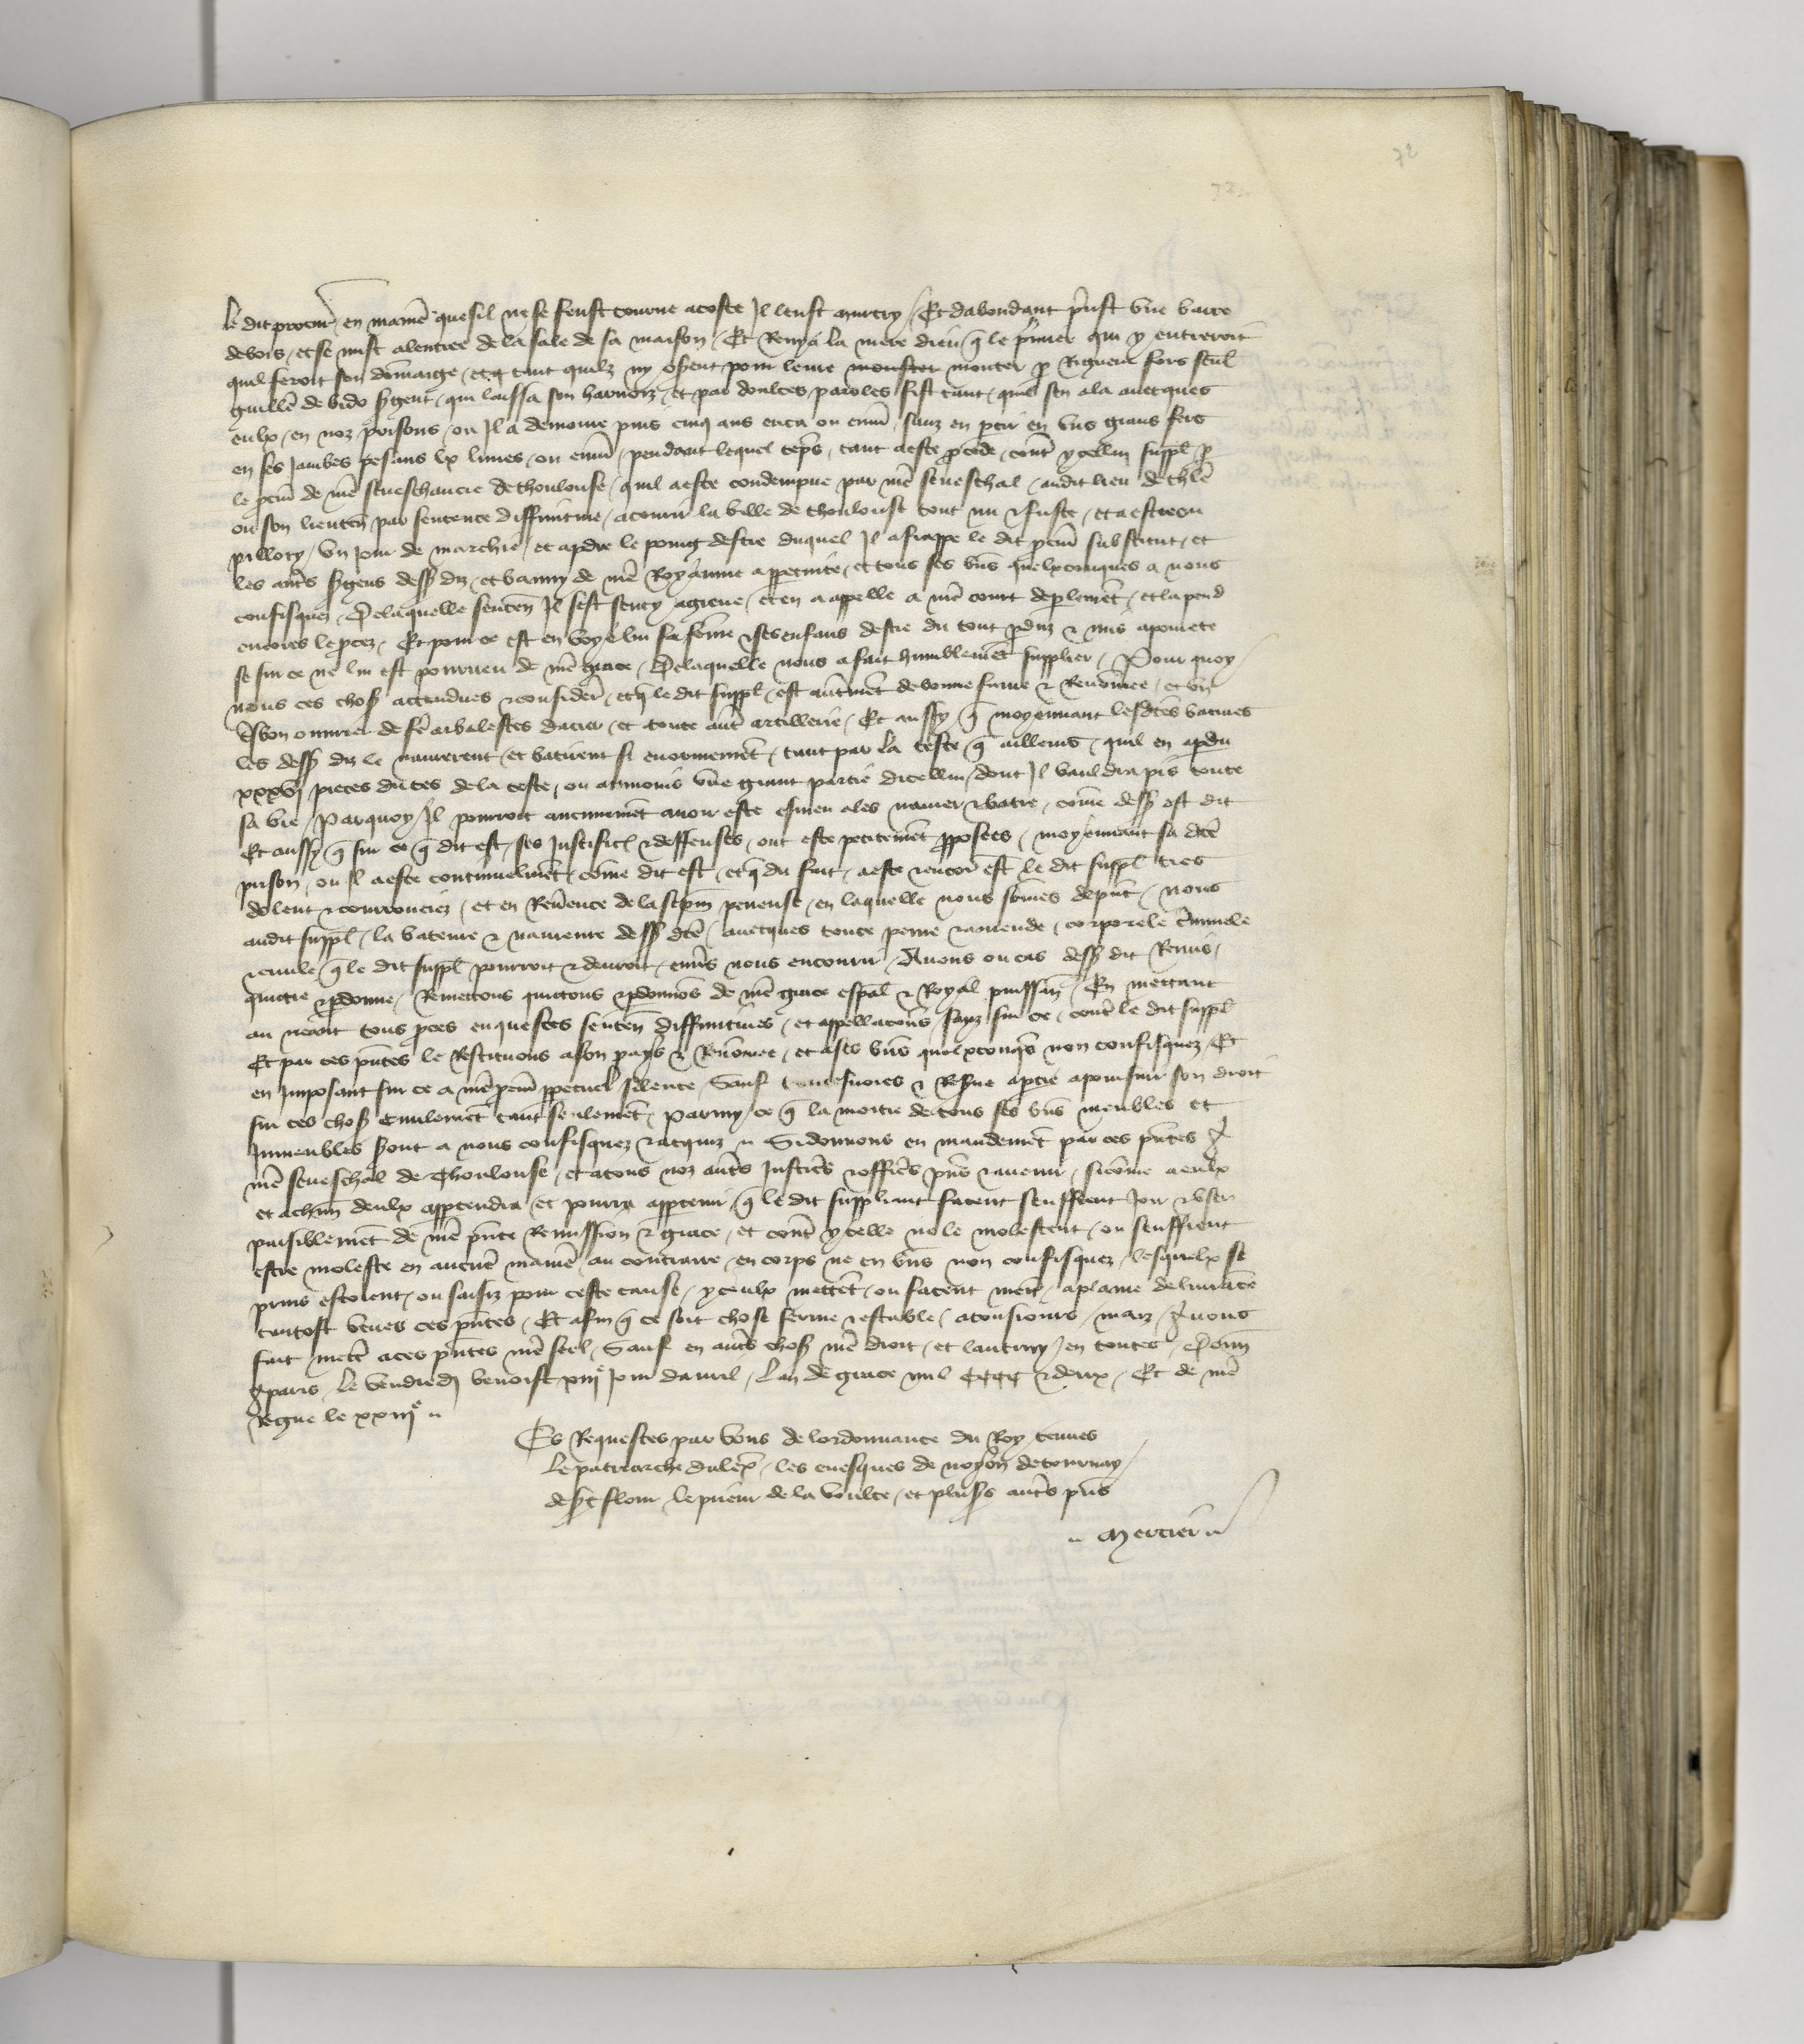 72
73
le dit procur̄ en maniē que sil ne se feust tourne acoste Il leust murtry / Et dabondant prist vne barre
debois / et se mist alentree de la sale de sa maison / Et Renya la mere dieu q̄ le pimier qui y entreroit
quil feroit son domaige / et tant quilz ny oserent pour leure monster monter p Rigueur fors seul
guillē de bido sgent / qui laissa son harnois / et par doulces paroles fist tant / quil sen ala auecques
eulx / en noz prisons / ou Il a demoure puis cinq ans enca ou enuir̄ / sanz en ptir en vns grans fers
en ses Jambes pesans lx liures / ou enuir̄ / pendant lequel tēps / tant aeste pcede / contr̄ ycellui suppl̄ p
le pcur̄ de nr̄e seneschaucie de thoulouse / quil aeste condempne par nr̄e seneschal / audit lieu de thle
ou son lieuten̄ par sentence diffinitiue / acourir la ville de thoulouse tout nu & fuste / et a estre ou
pillory / vn Jour de marchie / et apdre le poing destre duquel Il a frappe le dit pcur̄ substitut / et
les autr̄s sgens dess diz / et banny de nr̄e Royaume appetuite / et tous ses biēs quelxconques a nous
confisquez / De laquelle senten̄ Il sest senty agreue / et en a appelle a nr̄e court de plement / et la pend
encores le pces / Et pour ce est en voye lui sa feme & ses enfans destre du tout pduz & mis apourete
se sur ce ne lui est pourueu de nr̄e grace / De laquelle nous a fait humblemēt supplier / Pour quoy
nous ces chos̄ attendues & considerē / et q̄ le dit suppl̄ / est autrēmēt de bonne fame & Renōmee / et vn
tresbon ouurier de fe arbalestes dacier / et toute autr̄ artillerie / Et aussy q̄ moyennant lesdites batures
les dess diz le naurerent / et batirent si enormemēt / tant par la teste q̄ ailleurs / quil en apdu
xxxvj pieces du tes de la teste / ou aumoins vne grant partie dicellui / dont Il vauldra pis toute
sa vie / Parquoy Il pourroit aucunemēt auoir este esmeu ales naurer & batre / cōme dess est dit
Et aussy q̄ sur ce q̄ dit est / ses Justific̄ & deffenses / ont este petitemēt pposees / moyennant sa dite
prison / ou Il aeste continuelmēt / cōme dit est / et q̄ du fait / aeste & encor̄ est le dit suppl̄ tres
dolent & courrouciez / et en Reūence de la sepm̄ peneuse / en laquelle nous sōmes depnt̄ / nous
audit suppl̄ / la bateure & naureure dess dite / auecques toute peine & amende / corporele crīminele
& ciuile q̄ le dit suppl̄ pourroit & deuroit / enūs nous encourir / Auons ou cas dess dit Remis /
quictie & pdonne / Remettons quictons & pdonnōs de nr̄e grace espal̄ & Royal puissan̄ / En mettant
au neant tous pces enquestes senten̄ diffinitiues / et appellacons / faiz sur ce / contr̄ le dit suppl̄
Et par ces pntes le Restituons a son pays & Renōmee / et a ses biēs quelxconqs non confisquez / Et
en Imposant sur ce a nr̄e pcur̄ ppetuel silence Sauf & Reserue a ptie a poursuir son droit
sur ces chos̄ ciuilemēt tant seulemēt / Parmy ce q̄ la moitie de tous ses biēs meubles et
Immeubles sont a nous confisquez & acquiz // Si donnons en mandemēt par ces pntes A
nr̄e seneschal de Thoulouse / et atous noz autr̄s Justicrs & officrs pns & auenir / si cōme a eulx
et achūn deulx appartendra / et pourra appartenir q̄ le dit suppliant facent seuffrent Joir & vser
paisiblemēt de nr̄e pnte Remission & grace / et contr̄ ycelle ne le molestent / ou seuffrent
estre moleste en aucune maniē au contraire / en corps ne en biēs non confisquez / lesquelx se
prins estoient / ou saisiz pour ceste cause / yceulx mettēt / ou facent mettr̄ / aplaine deliurāce
tantost veues ces pntes / Et afin q̄ ce soit chose ferme & estable / atousiours / maiz Auons
fait mettr̄ a ces pntes nr̄e seel / Sauf en autr̄s chos̄ nr̄e droit / et lautruy / en toutes / Donn̄
A paris / le vendredj benoist xiiije Jour dauril / Lan de grace mil CCCC & deux / Et de nr̄e
Regne le xxiije //
Es Requestes par vous de lordonnance du Roy tenues
Le patriarche dalex̄ / les euesques de noyon de tournay /
de st flour / le prieur de la voulte / et pluss autr̄s pns
// Mercier //